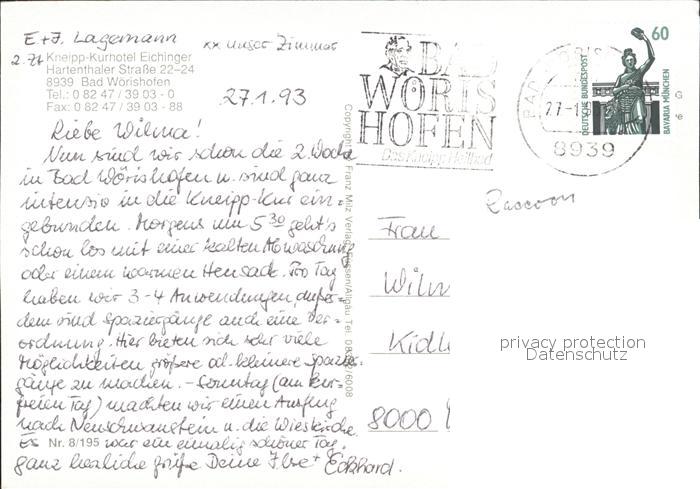 E+J. Lagemann
xx unser Zimmer
z.Zt Kneipp-Kurhotel Eichinger
Hartenthaler Straße 22-24
8939 Bad Wörishofen
Tel.: 0 82 47 / 39 03 - 0
Fax: 0 82 47 / 39 03 - 88
27.1.93
Liebe Wilma!
Nun sind wir schon die 2. Woche
in Bad Wörishofen u. sind ganz
intensiv in die Kneipp-Kur ein-
gebunden. Morgens um 5 30 geht's
schon los mit einer kalten Abwaschung
oder einem warmen Heusack. Pro Tag
haben wir 3-4 Anwendungen, außer-
dem sind Spaziergänge auch eine Ver-
ordnung. Hier bieten sich sehr viele
Möglichkeiten größere od. kleinere Spazier-
gänge zu machen. - Sonntag (am kur-
freien Tag) machten wir einen Ausflug
nach Neuschwanstein u. die Wieskirche.
Es Nr. 8/195 war ein einmalig schöner Tag.
ganz herzliche Grüße Deine Ilse + Eckhard.
Copyright by Franz Milz Verlag Füssen/Allgäu Tel.
BAD
WÖRIS
HOFEN
Das Kneipp Heilbad
8939
60
DEUTSCHE BUNDESPOST
BAVARIA MÜNCHEN
G
Frau
Wilm
8000
privacy protection
Datenschutz